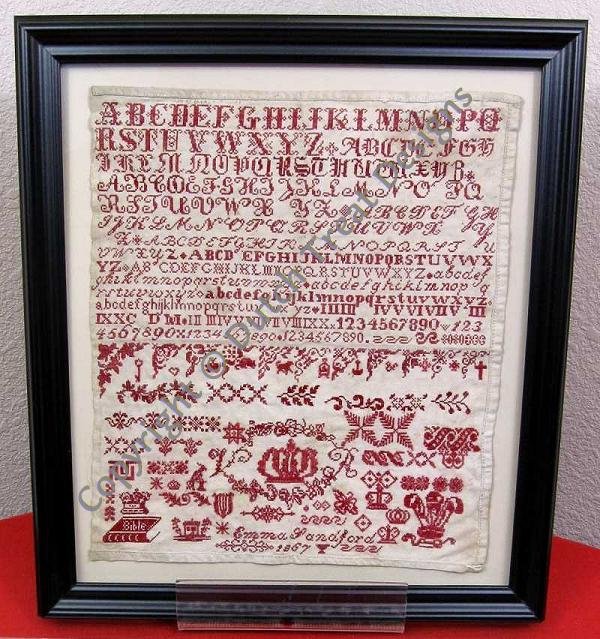 ABCDEFGHIJKLMNOPQ
RSTUVWXYZ ABCDEFGH
IJKLM NOPQRSTHUWXYZ
ABCDEFGHIJKLMNOPQ
RSTUVWX YZ ABCDEFGH
IJKLMNOPQRSTUVWX
YZ ABCDEFGHIJKLMNOPQRSTU
VWXYZ ABCD EFGHIJKLMNOPQRSTUVWX
YZ ABCDEFGHIJKLMNOPQRSTUVWXYZ abcdef
ghijklmnopqrstuvwxyz abcdefghijklmnopq
rstuvwxyz abcdefghijklmnopqrstuvwxyz
abcdefghijklmnopqrstuvwxyz
1234567890 123
4567890 1234567890 1234567890
Bible
Emma Sandford
1867
Copyright © Dutch Treat Designs